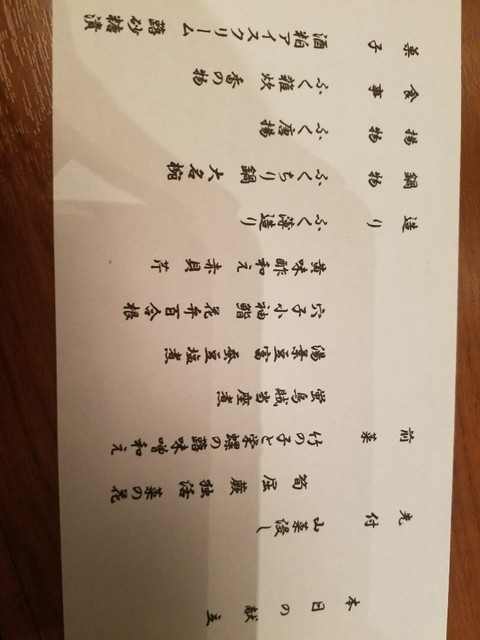 本日の献立
先付 山菜浸し
筍 屈 蕨 独活 菜の花
前菜 竹の子と栄螺の蕗味噌和え
蛍烏賊当座煮
豆富 蚕豆塩煮
穴子小袖鮨 花弁百合根
黄味酢和え 赤貝 芹
造り ふく薄造り
鍋物 ふくちり鍋 大名椀
揚物 ふく唐揚
食事 ふく雑炊 香の物
菓子 酒粕アイスクリーム 蕗砂糖漬